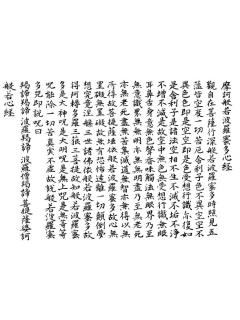 摩訶般若波羅蜜多心經
觀自在菩薩行深般若波羅蜜多時照見五
蘊皆空度一切苦厄舍利子色不異空空不
異色色即是空空即是色受想行識亦復如
是舍利子是諸法空相不生不滅不垢不淨
不增不減是故空中無色無受想行識無眼
耳鼻舌身意無色聲香味觸法無眼界乃至
無意識界無無明亦無無明盡乃至無老死
亦無老死盡無苦集滅道無智亦無得以無
所得故菩提薩埵依般若波羅蜜多故心無
罣礙無罣礙故無有恐怖遠離一切顛倒夢
想究竟涅槃三世諸佛依般若波羅蜜多故
得阿耨多羅三藐三菩提故知般若波羅蜜
多是大神呪是大明呪是無上呪是無等等
呪能除一切苦真實不虛故說般若波羅蜜
多呪即說呪曰
羯諦羯諦 波羅羯諦 波羅僧羯諦 菩提薩婆訶
般若心經